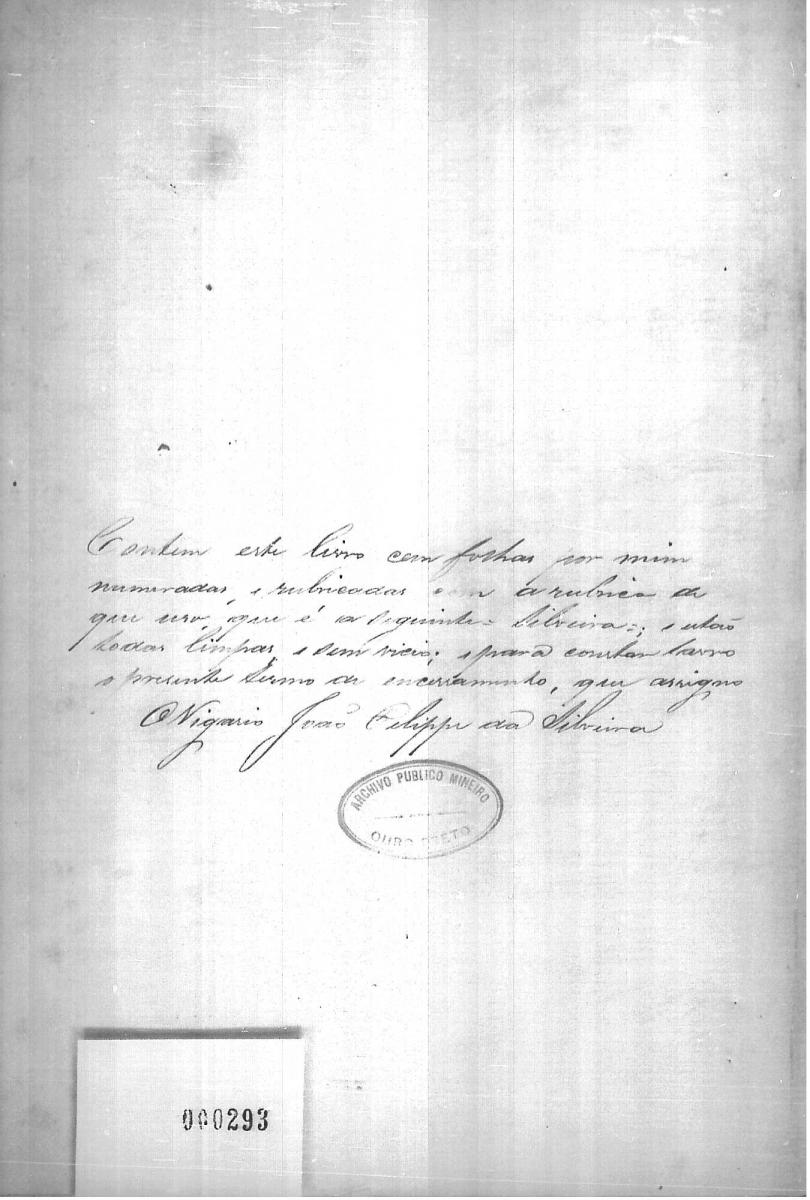 Contem este livro cem folhas por mim
numeradas, e rubricadas com a rubrica de
que uso, que é a seguinte = Silveira =; e estão
todas limpas, e sem vicio; e para constar lavro
o presente termo de encerramento, que assigno
O Vigario João Felippe da Silveira
ARCHIVO PUBLICO MINEIRO
OURO PRETO
000293